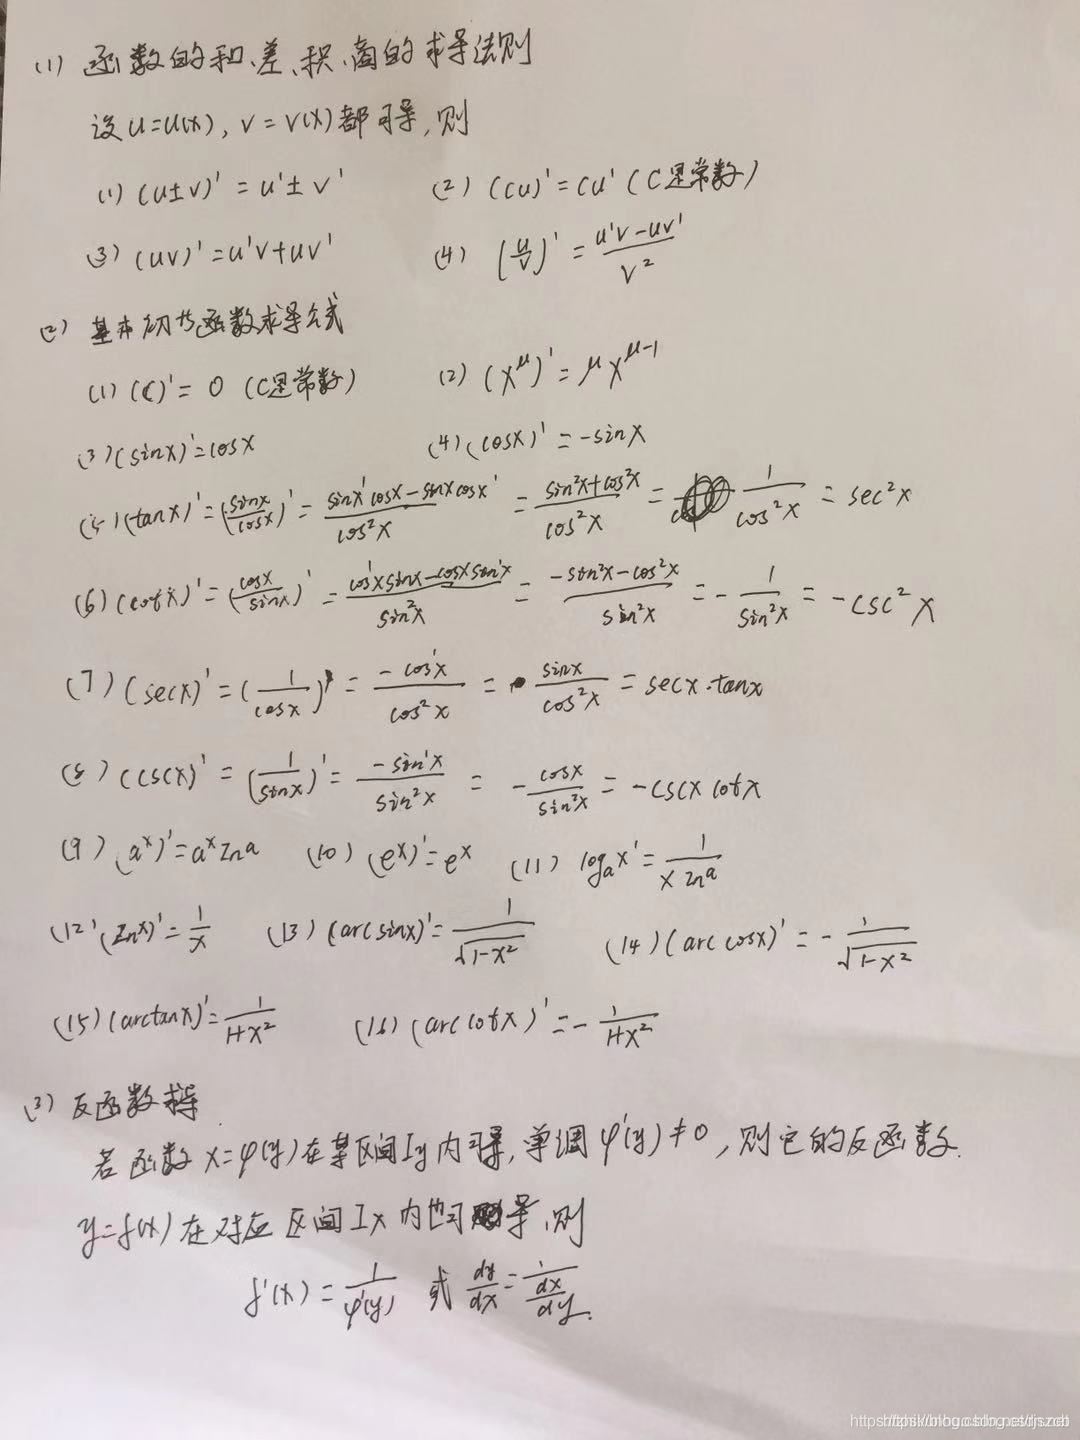 (1) 函数的和、差、积、商的求导法则
设 u=u(x), v=v(x) 都可导, 则
(1) (u±v)' = u'±v' (2) (Cu)' = Cu' (C是常数)
(3) (uv)' = u'v+uv' (4) (u/v)' = (u'v-uv')/v²
(2) 基本初等函数求导公式
(1) (C)' = 0 (C是常数) (2) (x^μ)' = μx^(μ-1)
(3) (sinx)' = cosx (4) (cosx)' = -sinx
(5) (tanx)' = (sinx/cosx)' = (sinx'cosx-sinxcosx')/cos²x = (sin²x+cos²x)/cos²x = 1/cos²x = sec²x
(6) (cotx)' = (cosx/sinx)' = (cos'xsinx-cosxsin'x)/sin²x = (-sin²x-cos²x)/sin²x = -1/sin²x = -csc²x
(7) (secx)' = (1/cosx)' = (-cos'x)/cos²x = sinx/cos²x = secx·tanx
(8) (cscx)' = (1/sinx)' = (-sin'x)/sin²x = -cosx/sin²x = -cscx cotx
(9) (a^x)' = a^x lna (10) (e^x)' = e^x (11) log_a x' = 1/(x lna)
(12) (lnx)' = 1/x (13) (arcsinx)' = 1/√(1-x²) (14) (arccosx)' = -1/√(1-x²)
(15) (arctanx)' = 1/(1+x²) (16) (arccotx)' = -1/(1+x²)
(3) 反函数求导
若函数 x=φ(y) 在某区间Iy内可导, 单调 φ'(y)≠0, 则它的反函数.
y=f(x) 在对应区间Ix内也可导, 则
f'(x) = 1/φ'(y) 或 dy/dx = 1/(dx/dy).